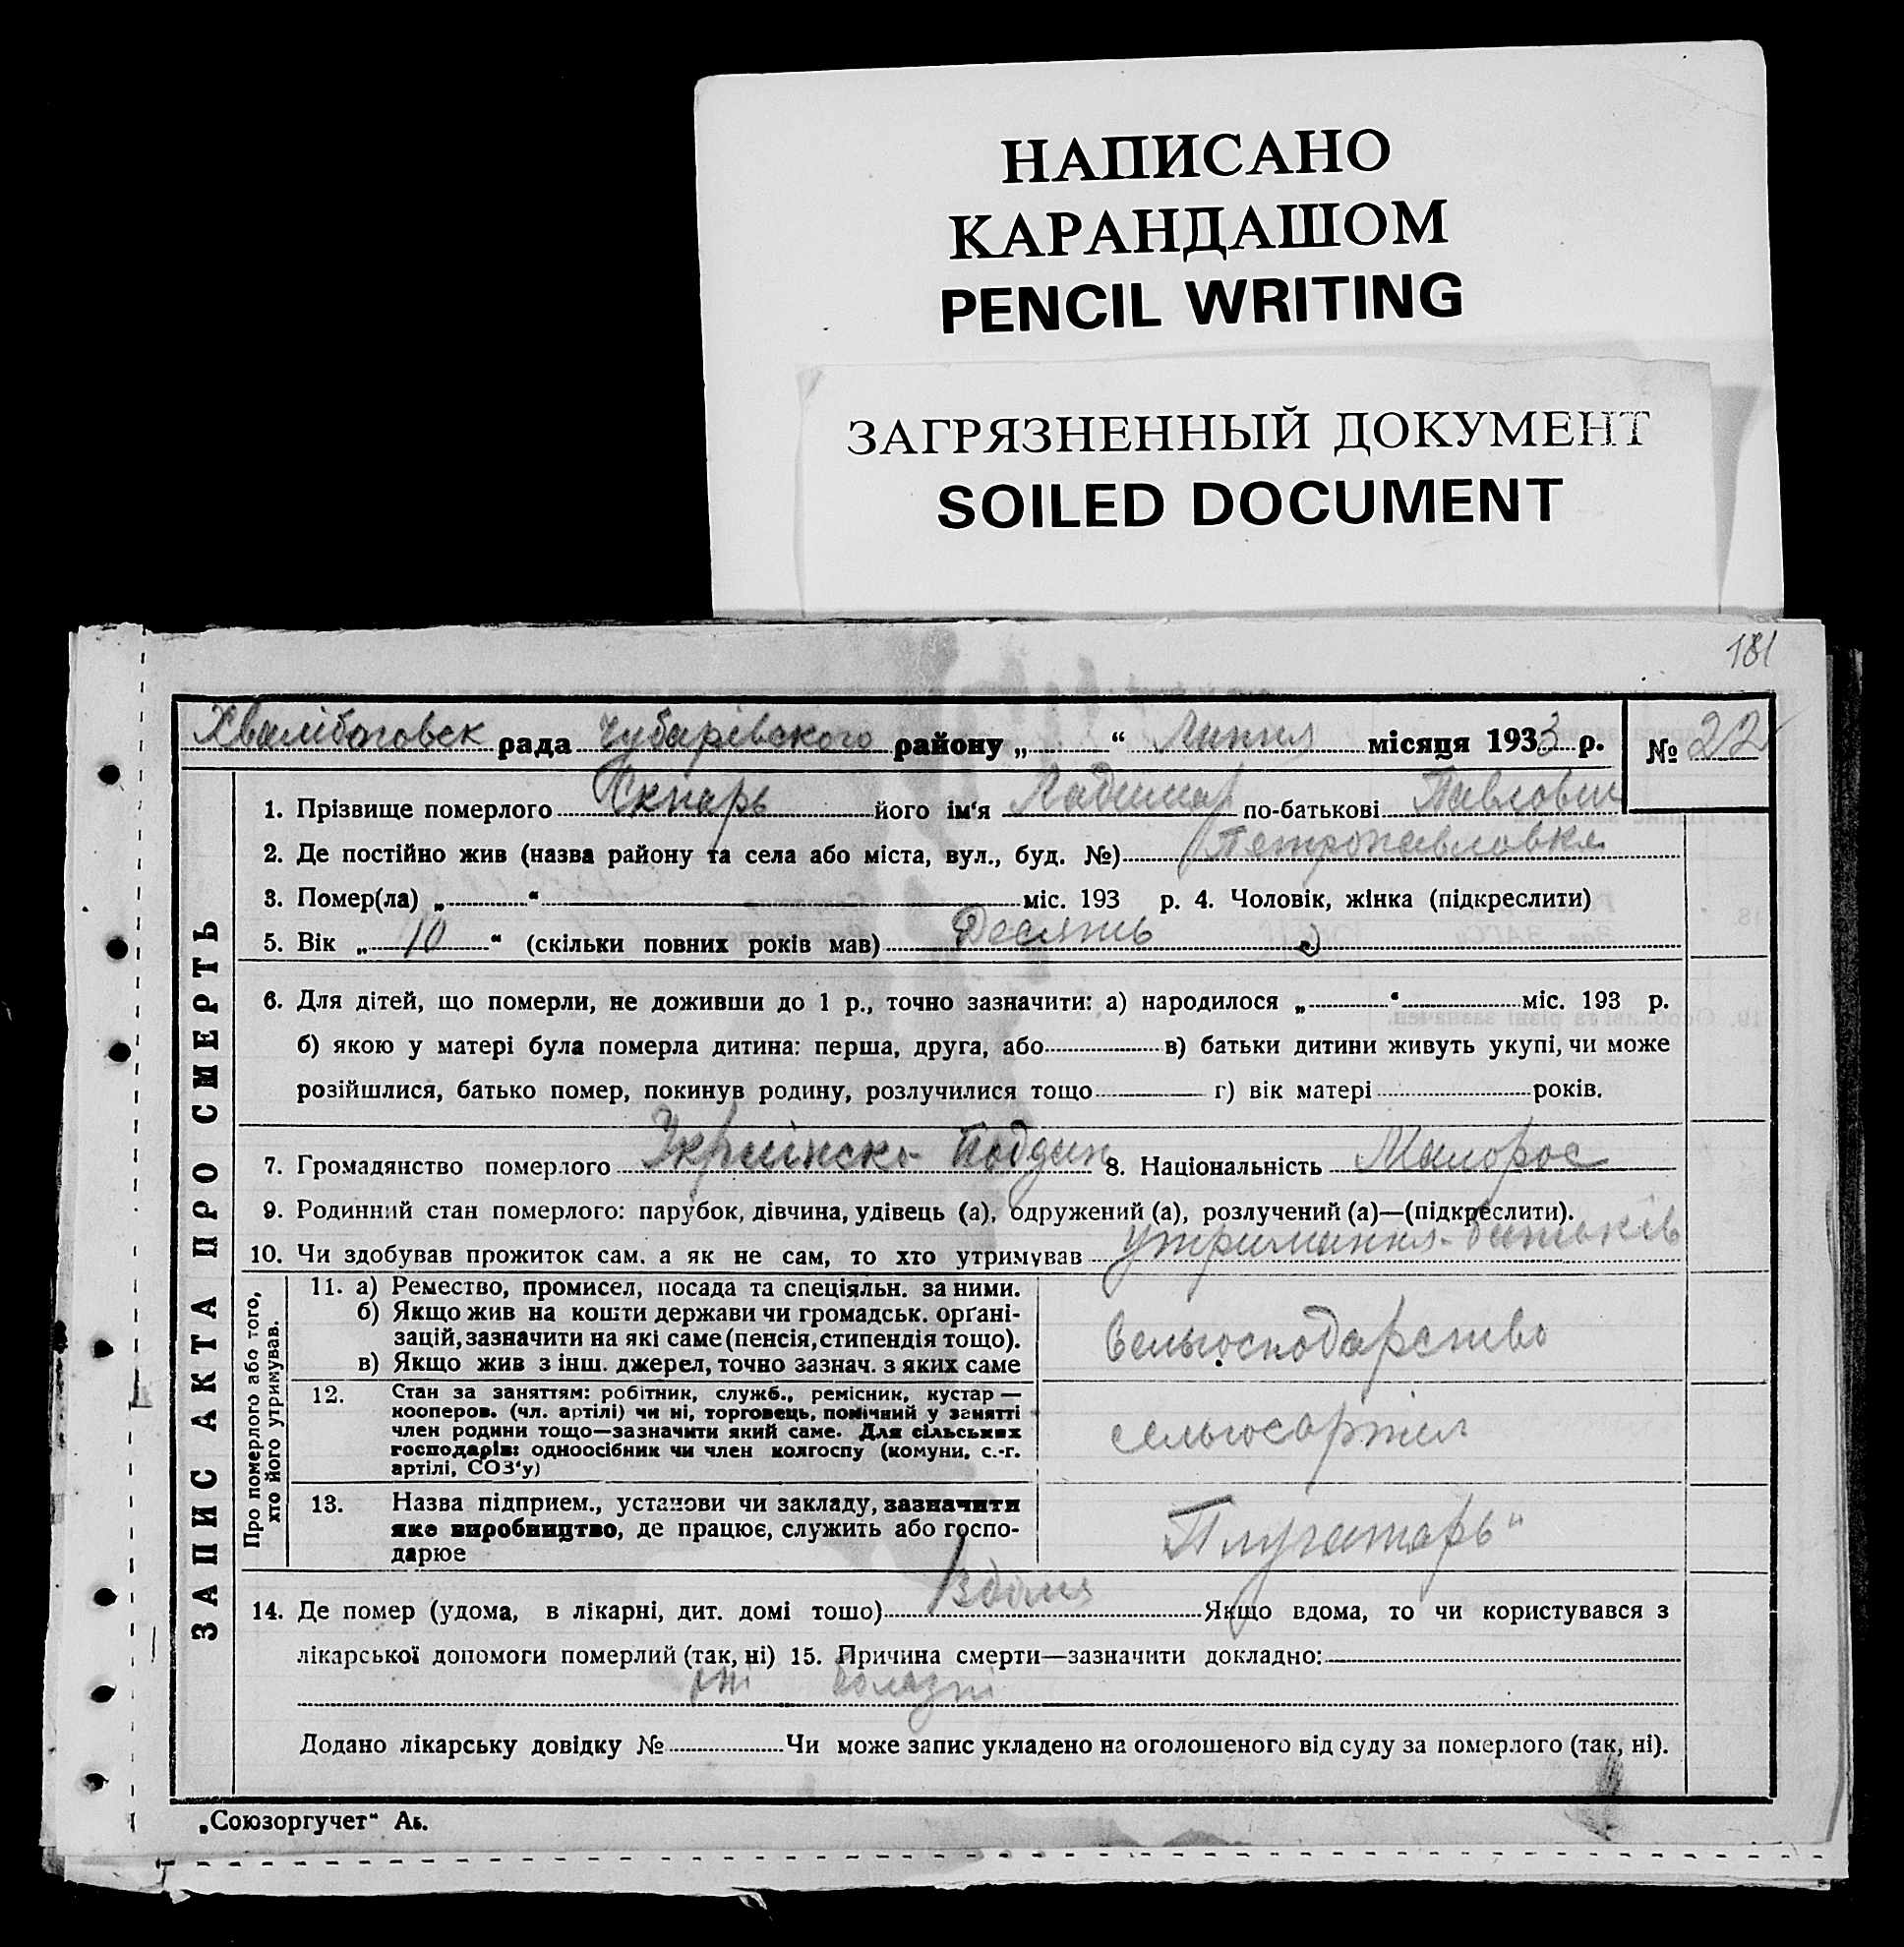 НАПИСАНО
КАРАНДАШОМ
PENCIL WRITING
ЗАГРЯЗНЕННЫЙ ДОКУМЕНТ
SOILED DOCUMENT
181
Хвалібоговск рада Чубарівского району „ “ Липня місяця 1933 р. № 22
1. Прізвище померлого його ім‘я Ладимар по-батькові Павлович
2. Де постійно жив (назва району та села або міста, вул., буд. №) Петропавловка
3. Помер(ла) „ “ міс. 193 р. 4. Чоловік, жінка (підкреслити)
5. Вік „ 10 “ (скільки повних років мав) Десять
6. Для дітей, що померли, не доживши до 1 р., точно зазначити: а) народилося „ “ міс. 193 р.
б) якою у матері була померла дитина: перша, друга, або в) батьки дитини живуть укупі, чи може
розійшлися, батько помер, покинув родину, розлучилися тощо г) вік матері років.
7. Громадянство померлого Украінско Поддан 8. Національність Малорос
9. Родинний стан померлого: парубок, дівчина, удівець (а), одружений (а), розлучений (а)—(підкреслити).
10. Чи здобував прожиток сам. а як не сам, то хто утримував утримання батьків
ЗАПИС АКТА ПРО СМЕРТЬ
Про померлого або того,
хто його утримував.
11. а) Ремество, промисел, посада та спеціяльн. за ними.
б) Якщо жив на кошти держави чи громадськ. орґані-
зацій, зазначити на які саме (пенсія, стипендія тощо).
в) Якщо жив з інш. джерел, точно зазнач. з яких саме
сельгосподарство
12. Стан за заняттям: робітник, служб., ремісник, кустар —
кооперов. (чл. артілі) чи ні, торговець, помічний у занятті
член родини тощо—зазначити який саме. Для сільських
господарів: одноосібник чи член колгоспу (комуни, с.-г.
артілі, СОЗ‘у)
сельгосартіл
13. Назва підприєм., установи чи закладу, зазначити
яке виробництво, де працює, служить або госпо-
дарює
„Плугатарь“
14. Де помер (удома, в лікарні, дит. домі тошо) Вдома Якщо вдома, то чи користувався з
лікарської допомоги померлий (так, ні) 15. Причина смерти—зазначити докладно:
болазні
Додано лікарську довідку № Чи може запис укладено на оголошеного від суду за померлого (так, ні).
„Союзоргучет“ Аь.